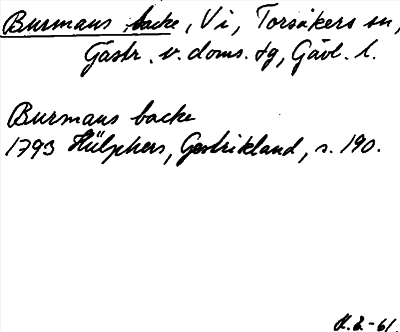 Burmans backe, Vi, Torsåkers sn,
Gästr. v. doms. tg, Gävl. l.
Burmans backe
1793 Hülphers, Gestrikland, s. 190.
H.E-61.